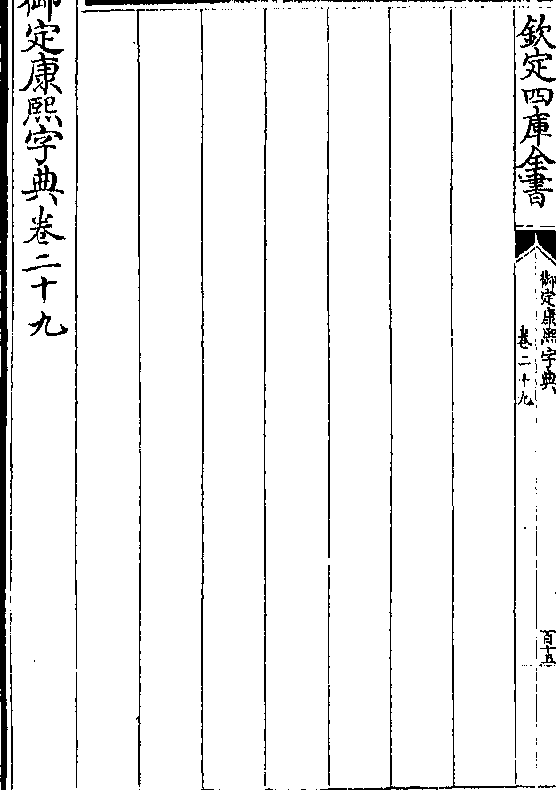 欽定四庫全書
御定康熙字典
卷二十九
百十五
御定康熙字典卷二十九